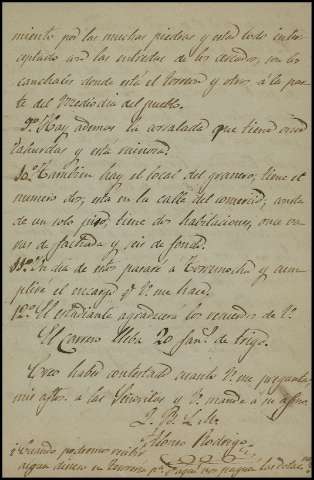 miento por las muchas piedras y esta todo inter
ceptado con las entradas de los cercados, con los
canchales donde está el torreon y otros a la par
te del Mediodia del pueblo.
9º. Hay ademas la corralada que tiene once
tahurdas y esta ruinosa.
10º. Tambien hay el local del granero, tiene el
numero dos, esta en la calle del consta
de un solo piso, tiene dos habitaciones, once va
ras de fachada y seis de fondo.
11º. Un dia de estos pasaré a Torremocha y cum
pliré el encargo q. V. me hace.
12º. El estudiante agradecera los recuerdos de V.
El Carrero lleba 20 fans. de trigo.
Creo haber contestado cuanto V. me pregunta,
mis aftos. a las Señoritas y V. mande a su afmo.
Q. B. L. M.
Rodrigo
¿Cuando podremos recibir
algun dinero en